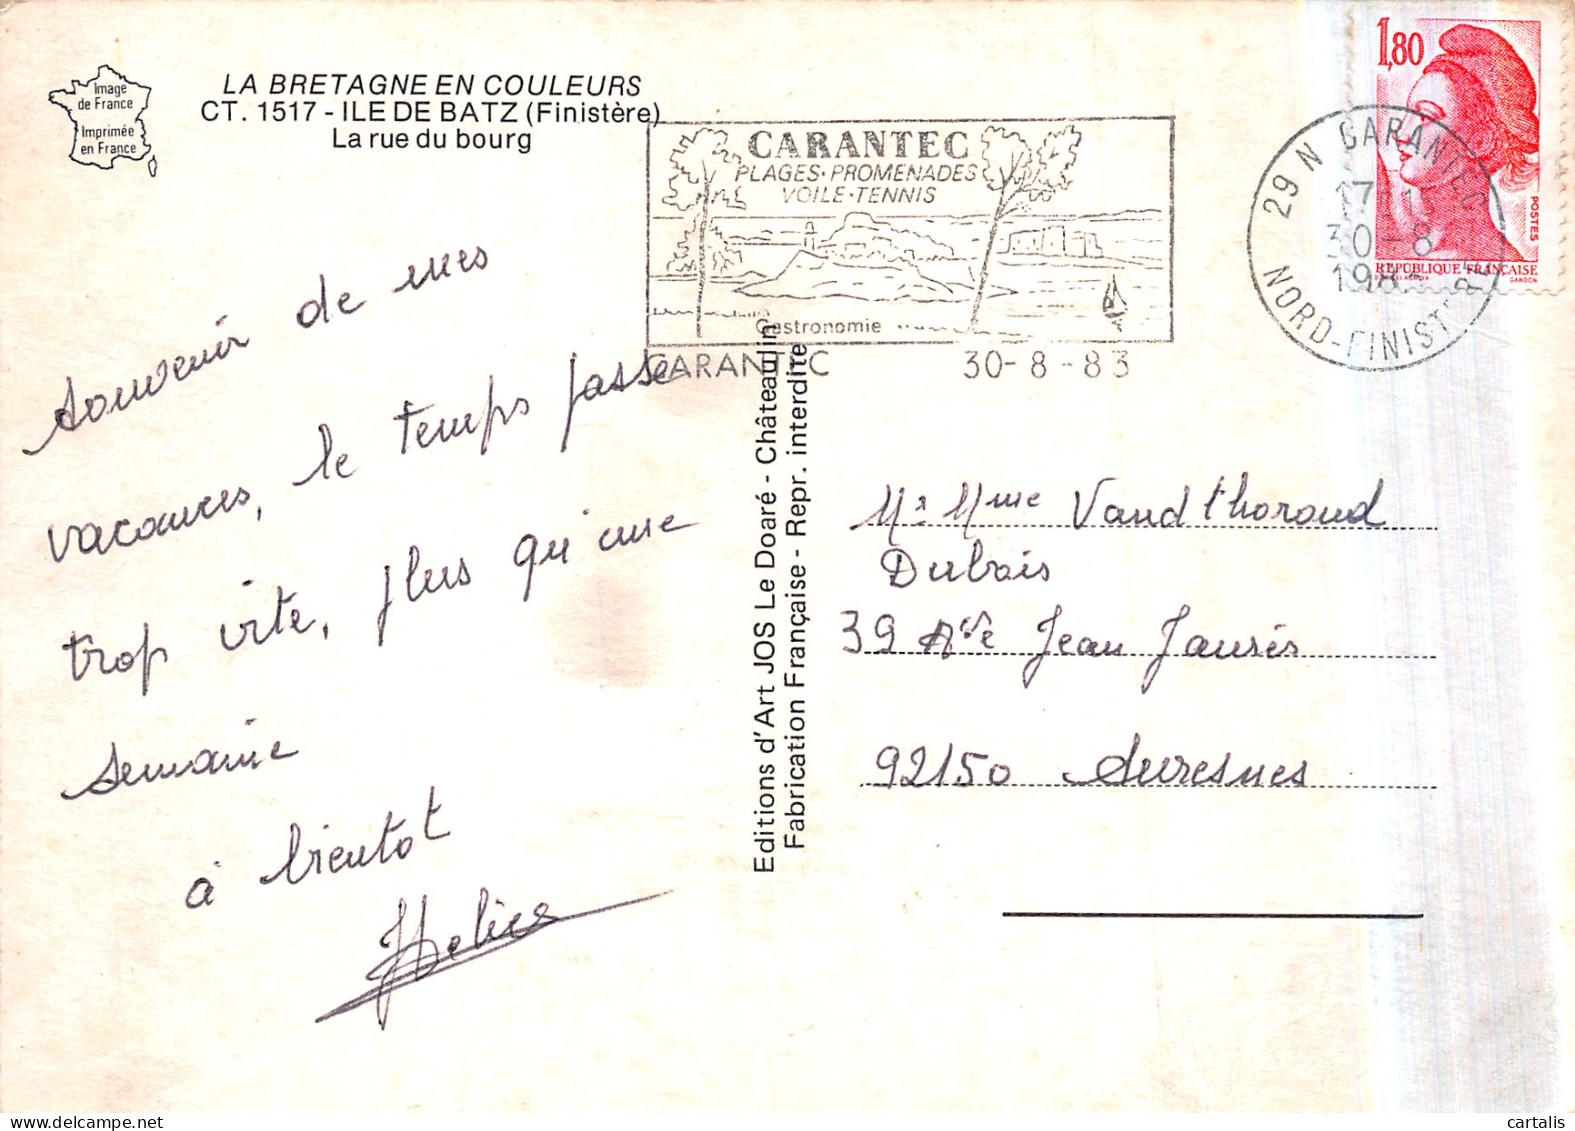 Image
de France
Imprimée
en France
LA BRETAGNE EN COULEURS
CT. 1517 - ILE DE BATZ (Finistère)
La rue du bourg
CARANTEC
PLAGES·PROMENADES
VOILE·TENNIS
Gastronomie
CARANTEC 30-8-83
29 N CARANTEC
30-8
NORD-FINIST
1,80
POSTES
REPUBLIQUE FRANÇAISE
GANDON
souvenir de mes
vacances, le temps passe
trop vite, plus qu'une
semaine
à bientot
Editions d'Art JOS Le Doaré - Châteaulin
Fabrication Française - Repr. interdite
Mr Mme Vandthoroud
Dubois
39 Ave Jean Jaurès
92150 Suresnes
cartalis